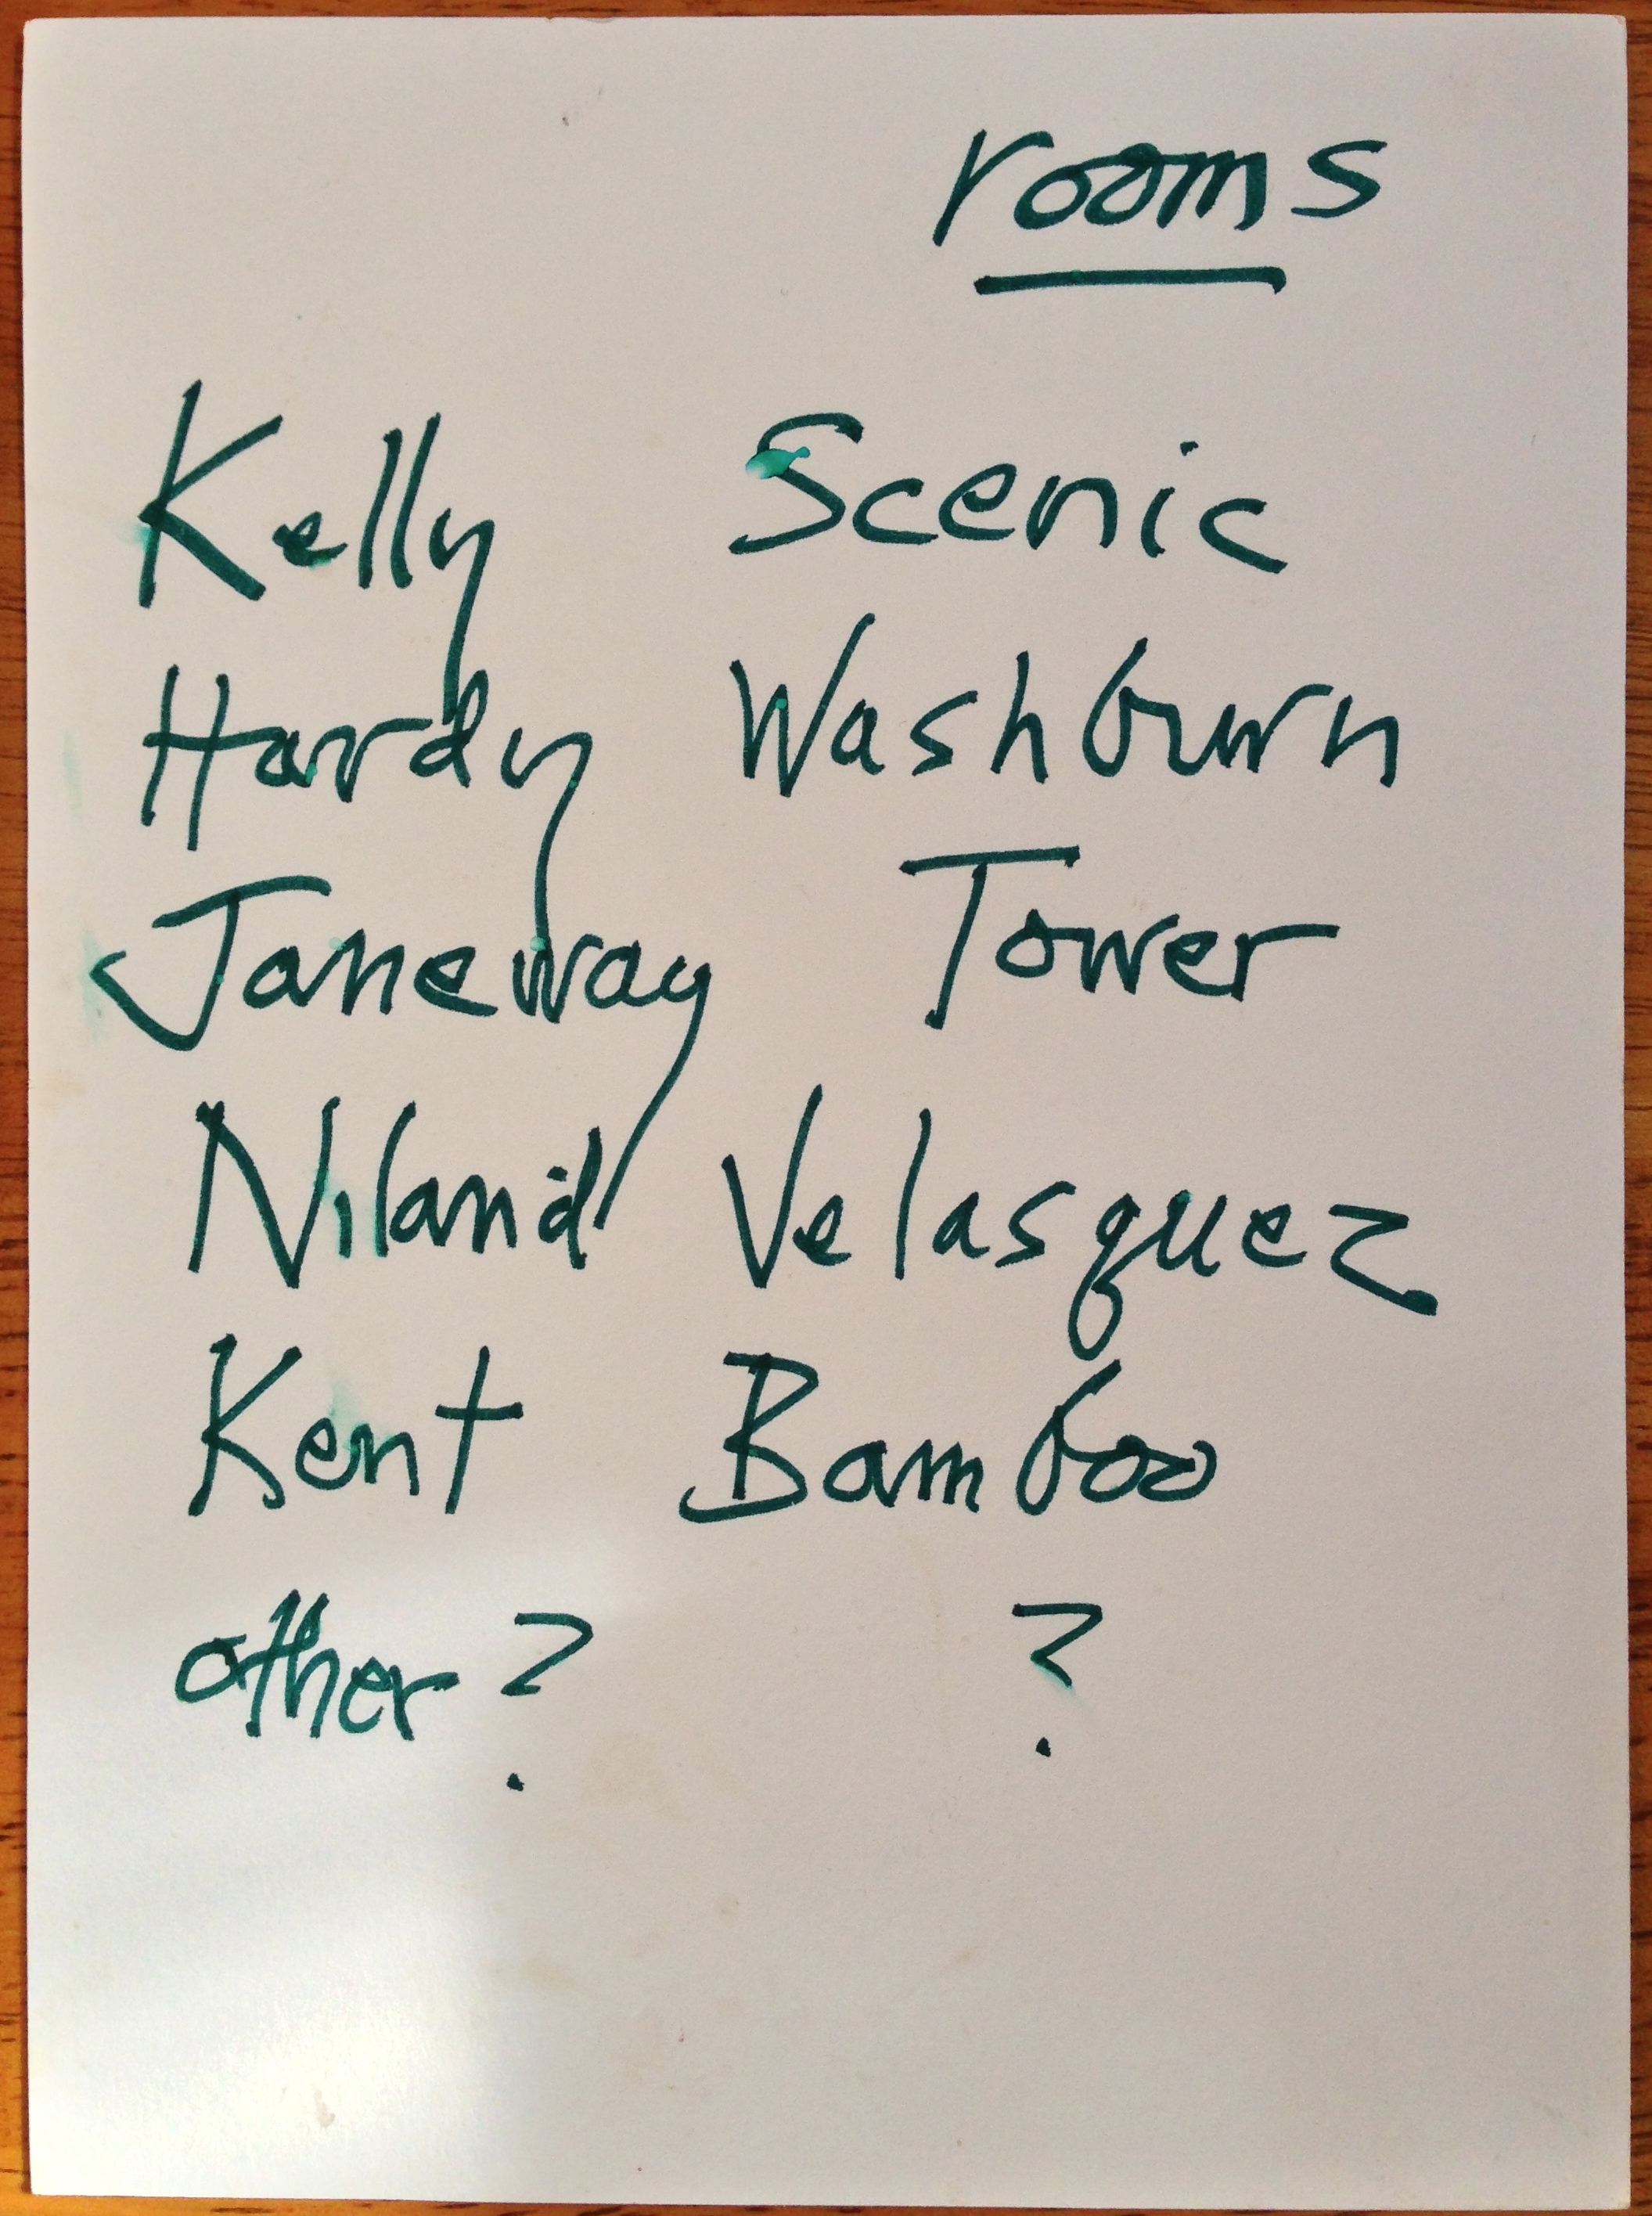 rooms
Kelly Scenic
Hardy Washburn
Janeway Tower
Niland Velasquez
Kent Bamboo
other? ?